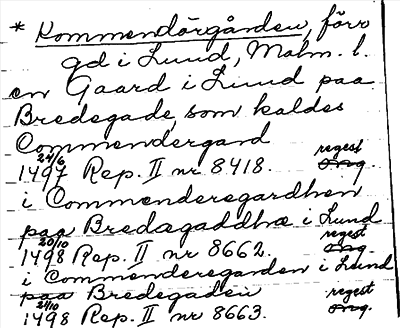 * Kommendörgården, förr
gd i Lund, Malm. l.
en Gaard i Lund paa
Bredegade, som kaldes
Commendergard
24/6 1497 Rep. II nr 8418. regest orig.
i Commenderegardhen
paa Bredagaddhæ i Lund
20/10 1498 Rep. II nr 8662. regest orig.
i Commenderegarden i Lund
paa Bredegaden
24/10 1498 Rep. II nr 8663. regest orig.